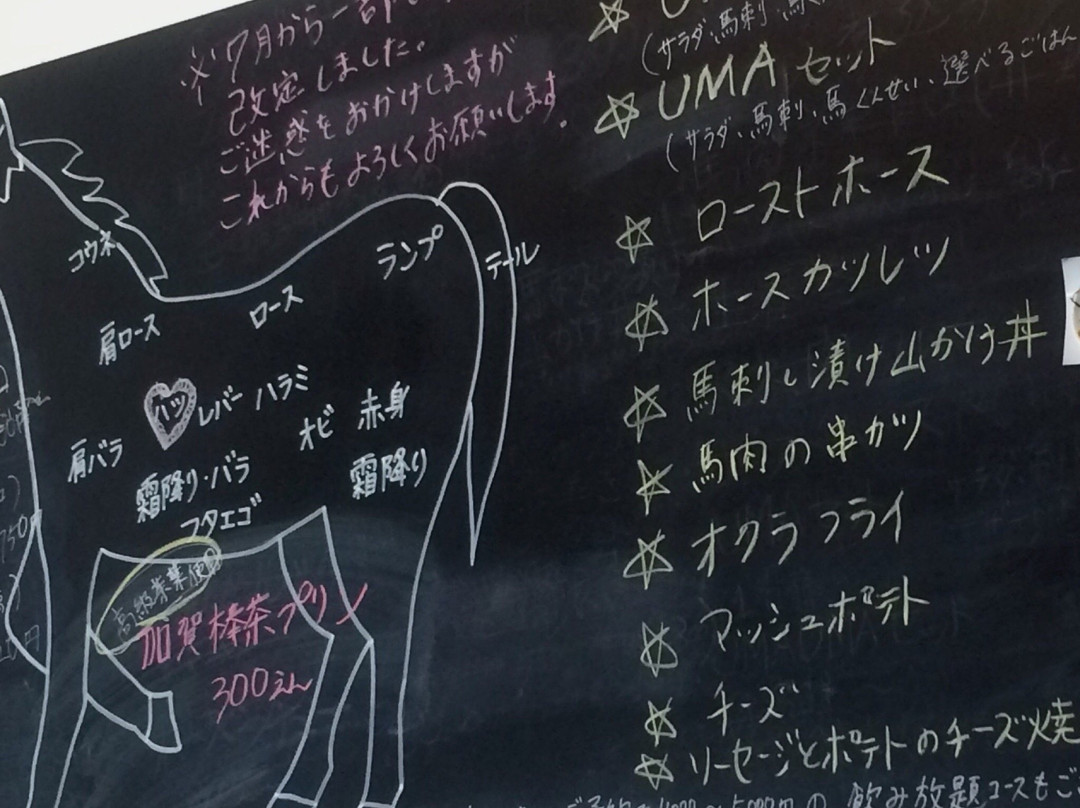 ※7月から一部
改定しました。
ご迷惑をおかけしますが
これからもよろしくお願いします。
コウネ
ランプ
テール
肩ロース
ロース
ハツ
レバー
ハラミ
肩バラ
オビ
赤身
霜降り・バラ
霜降り
フタエゴ
高級茶葉使用
加賀棒茶プリン
300えん
(サラダ、馬刺、馬
☆UMAセット
(サラダ、馬刺、馬くんせい、選べるごはん
☆ローストホース
☆ホースカツレツ
☆馬刺し漬け山かけ丼
☆馬肉の串カツ
☆オクラフライ
☆マッシュポテト
☆チーズ
☆ソーセージとポテトのチーズ焼
飲み放題コースもご